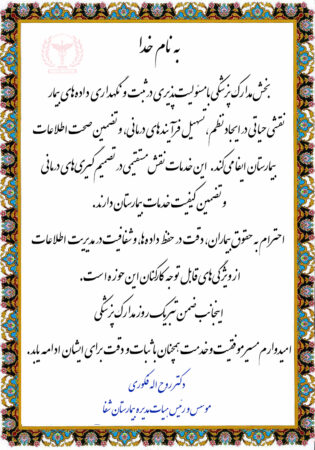 به نام خدا
بخش مدارک پزشکی با مسئولیت پذیری در ثبت و نگهداری داده های بیمار
نقشی حیاتی در ایجاد نظم، تسهیل فرآیندهای درمانی، و تضمین صحت اطلاعات
بیمارستان ایفا می کند. این خدمات نقش مستقیمی در تصمیم گیری های درمانی
و تضمین کیفیت خدمات بیمارستان دارند.
احترام به حقوق بیماران، دقت در حفظ داده ها، و شفافیت در مدیریت اطلاعات
از ویژگی های قابل توجه کارکنان این حوزه است.
اینجانب ضمن تبریک روز مدارک پزشکی
امیدوارم مسیر موفقیت و خدمت همچنان با ثبات و دقت برای ایشان ادامه یابد.
دکتر روح اله فکوری
موسس و رئیس هیات مدیره بیمارستان شفا